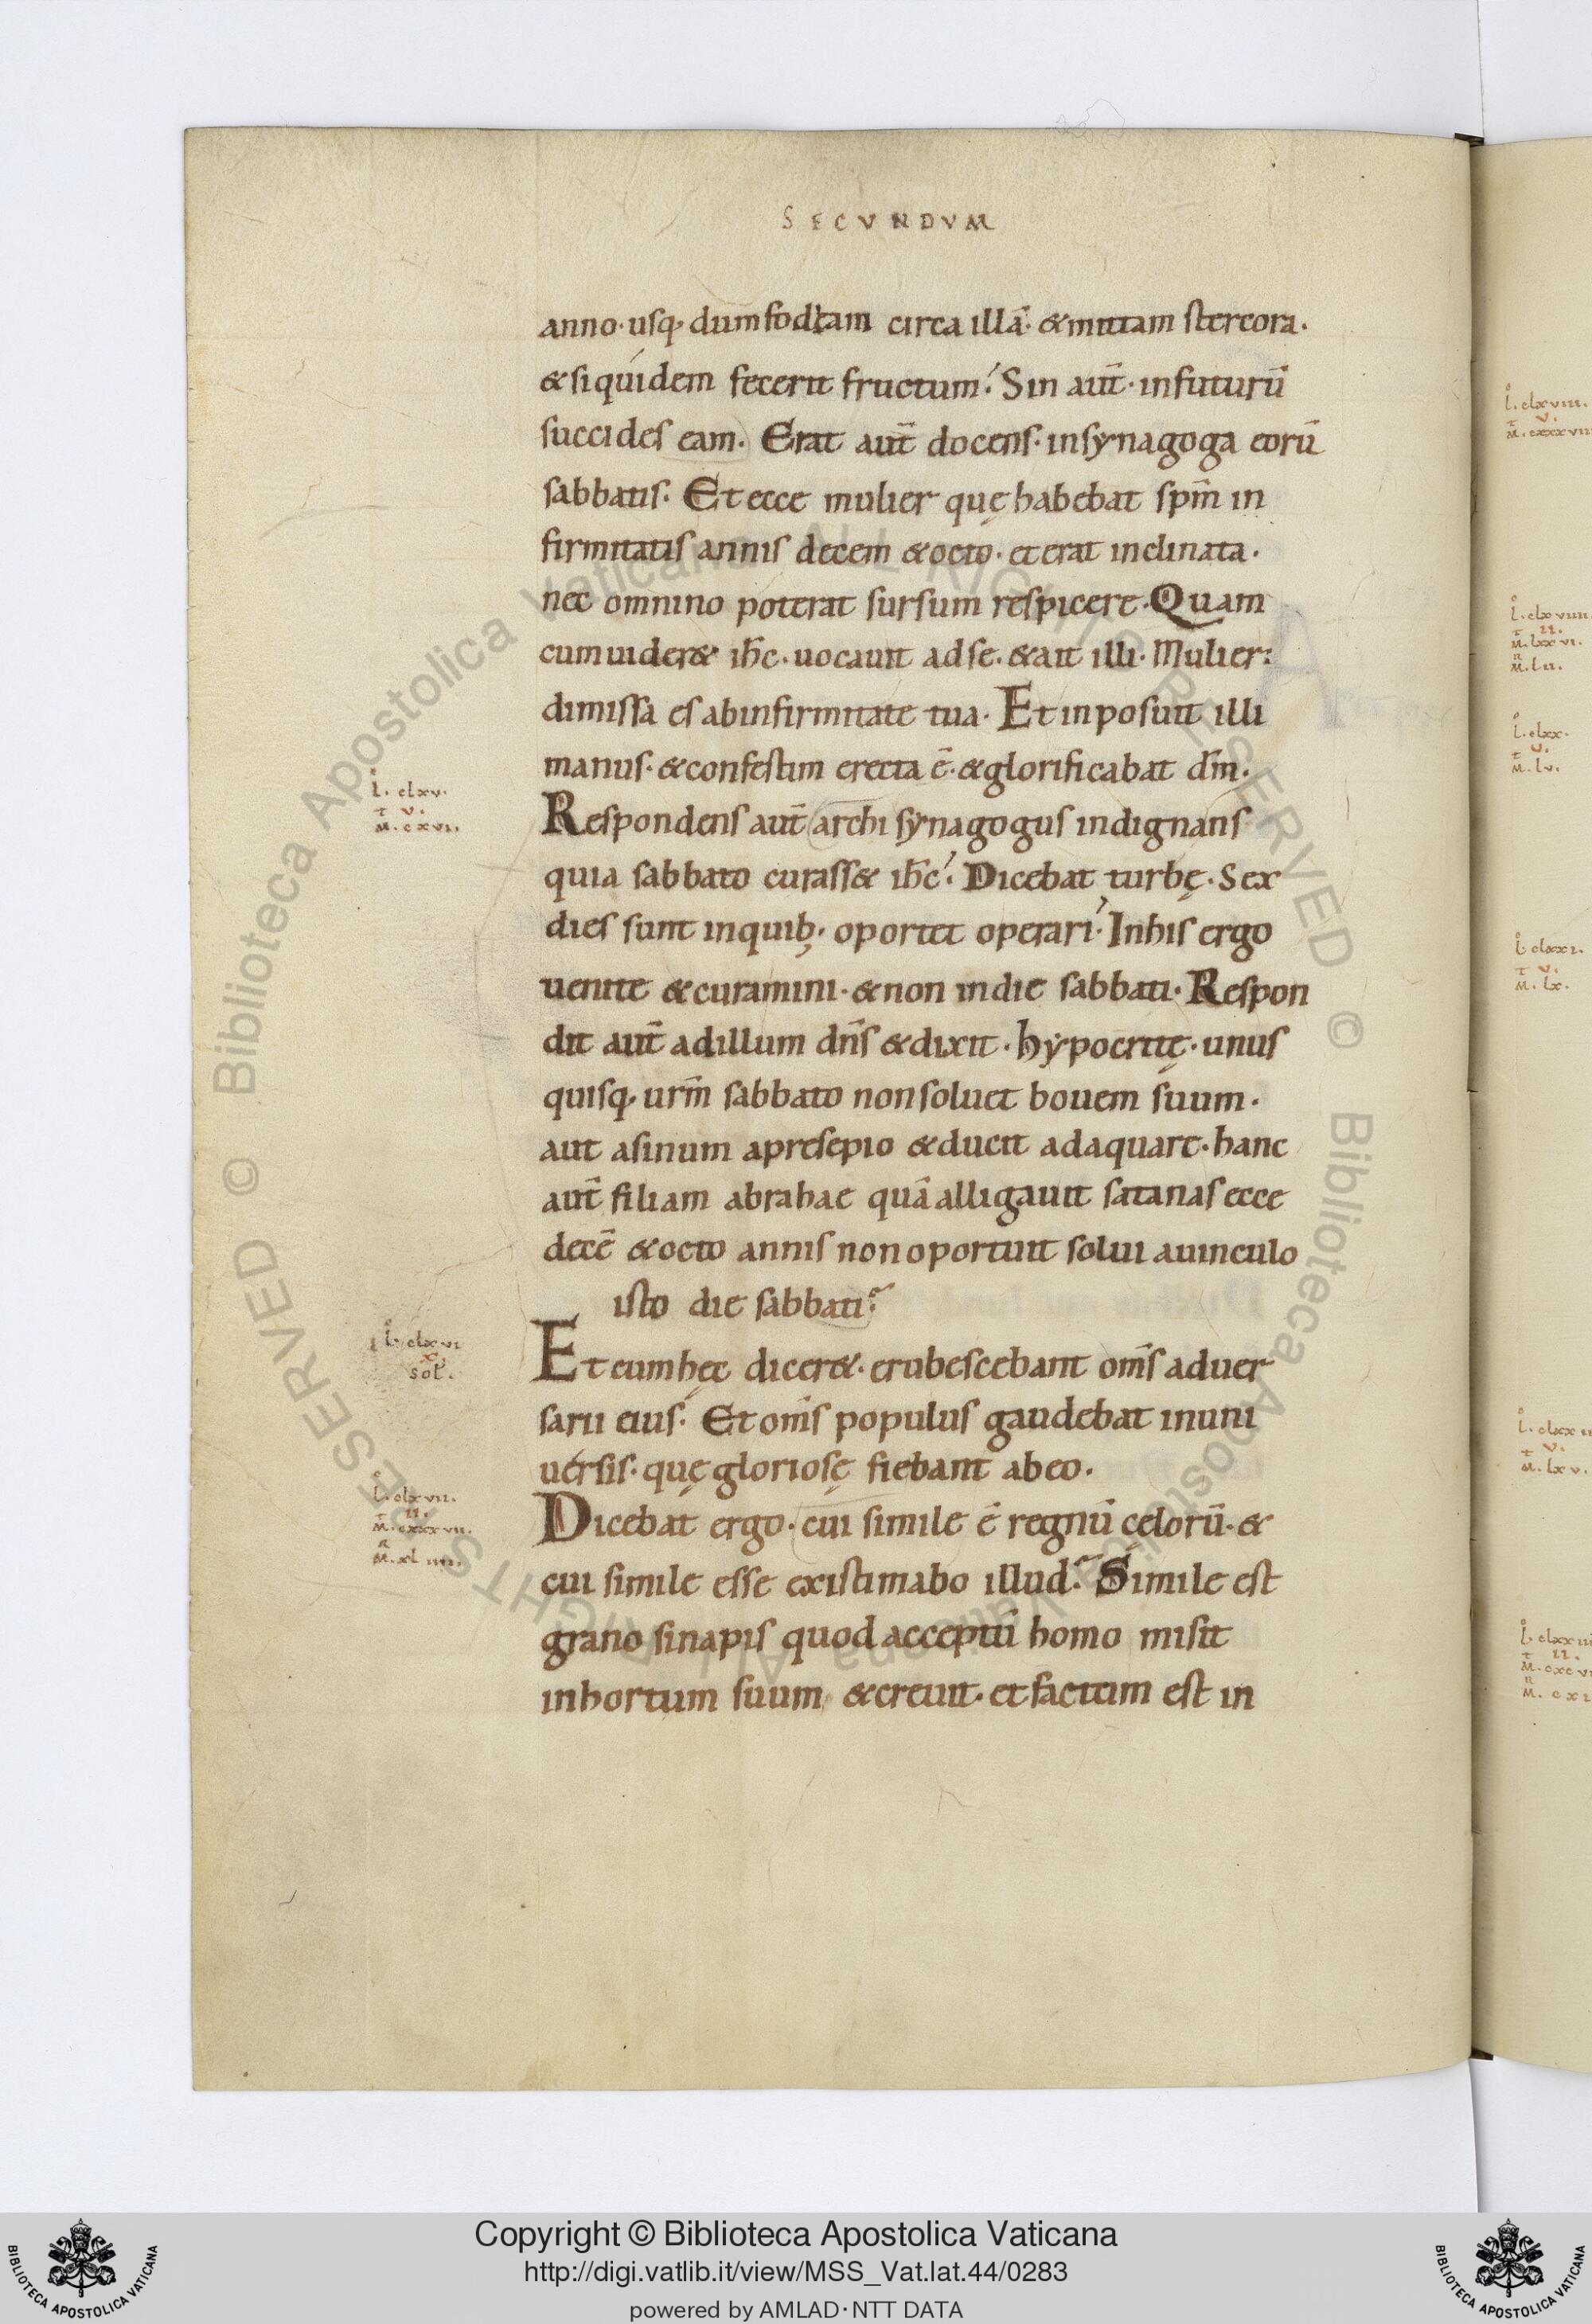 SECVNDVM
anno· usq· dum fodiam circa illā· & mittam stercora·
& siquidem fecerit fructum· Sin aut̄· in futurū
succides eam· Erat aut̄ docens· in synagoga eorū
sabbatis· Et ecce mulier quę habebat sp̄m in
firmitatis annis decem & octo· et erat inclinata·
nec omnino poterat sursum respicere· Quam
cum uider& ih̄c· uocauit ad se· & ait illi· Mulier:
dimissa es ab infirmitate tua· Et inposuit illi
manus· & confestim erecta ē· & glorificabat dm̄·
Respondens aut̄ archisynagogus indignans
quia sabbato curass& ih̄c· Dicebat turbę· Sex
dies sunt in quib; oportet operari· In his ergo
uenite & curamini· & non in die sabbati· Respon
dit aut̄ ad illum dn̄s & dixit· hypocritę· unus
quisq· urm̄ sabbato non soluet bouem suum·
aut asinum a presepio & ducit adaquare· hanc
aut̄ filiam abrahae quā alligauit satanas ecce
decē & octo annis non oportuit solui a uinculo
isto die sabbati?
Et cum hęc dicer&· erubescebant om̄s aduer
sarii eius· Et om̄s populus gaudebat in uni
uersis· quę gloriosę fiebant ab eo·
Dicebat ergo· cui simile ē regnū cęlorū· &
cui simile esse existimabo illud? Simile est
grano sinapis quod acceptū homo misit
in hortum suum & creuit· et factum est in
L. clxv.
v.
M. cxvi.
L. clxvi
x.
sol.
L. clxvii.
ii.
M. cxxxvii.
M. xliiii.
L. clxviii.
v.
L. clxviiii
ii.
M. lxxvi.
M. lii.
L. clxx.
v.
M. lv.
L. clxxi.
v.
M. lx.
v.
M. lxv.
ii.
Copyright © Biblioteca Apostolica Vaticana
http://digi.vatlib.it/view/MSS_Vat.lat.44/0283
powered by AMLAD·NTT DATA
BIBLIOTECA APOSTOLICA VATICANA
BIBLIOTECA APOSTOLICA VATICANA
© Biblioteca Apostolica Vaticana ALL RIGHTS RESERVED © Biblioteca Apostolica Vaticana ALL RIGHTS RESERVED